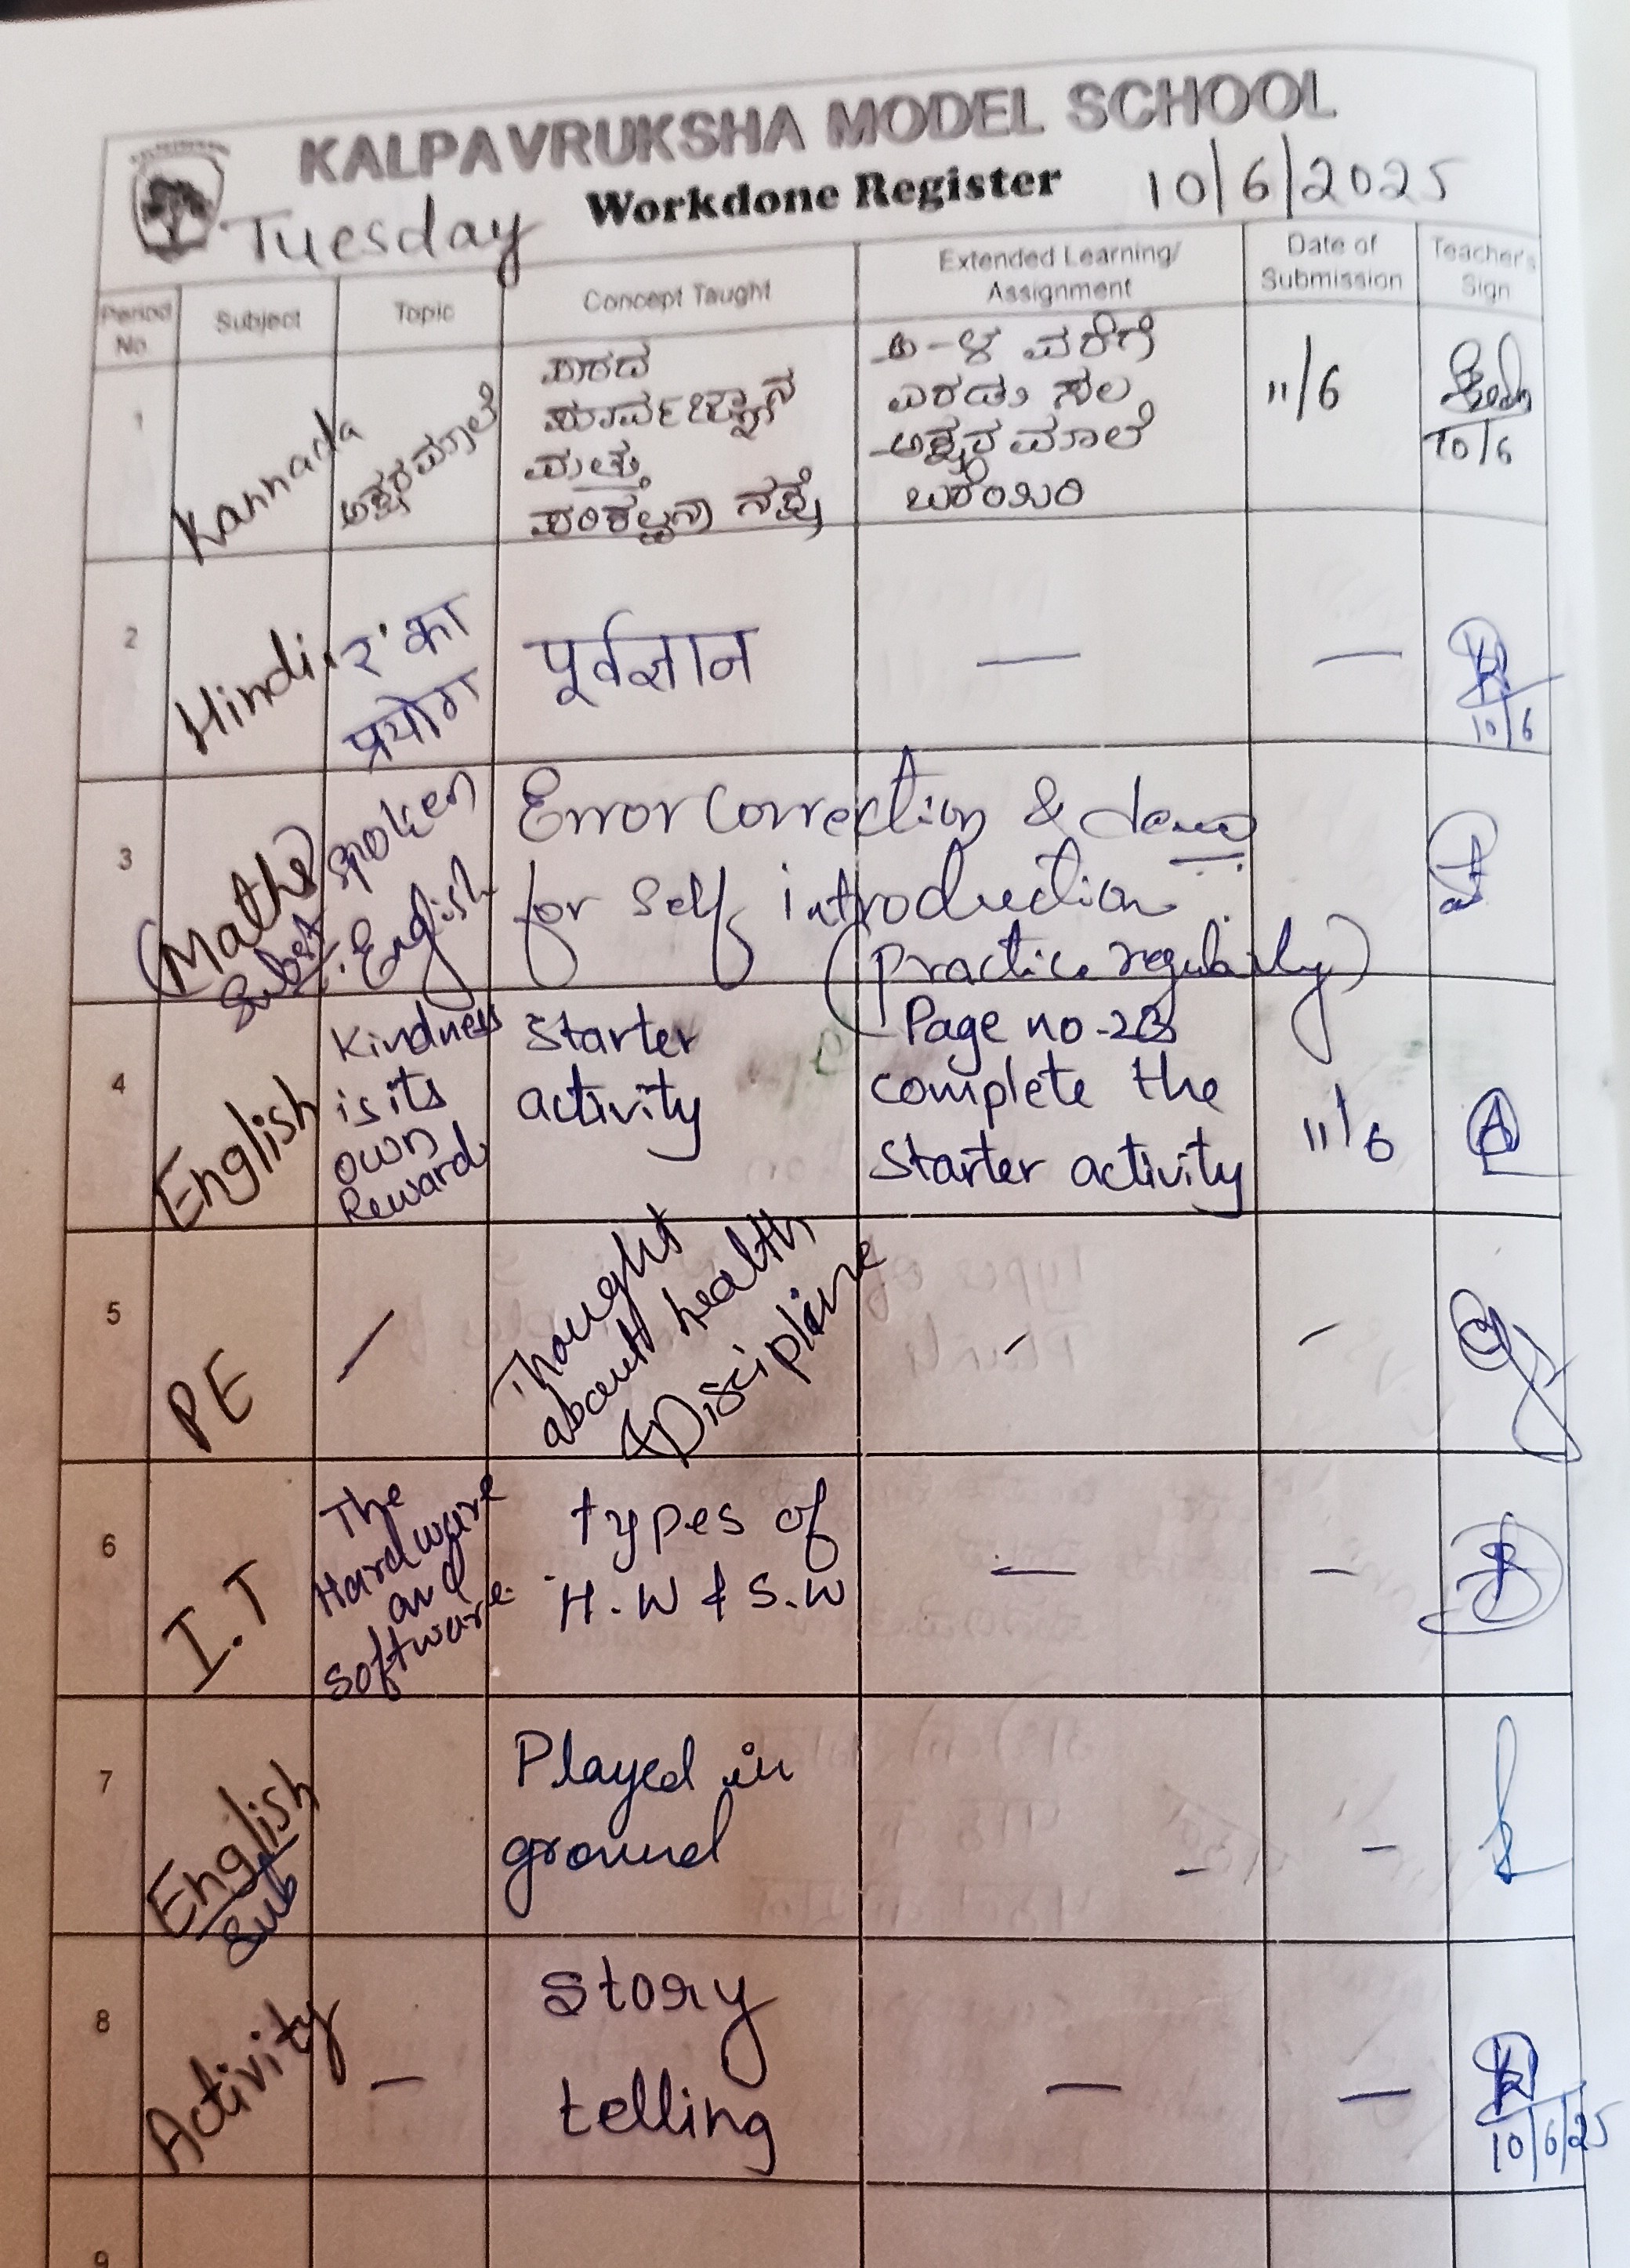 KALPAVRUKSHA MODEL SCHOOL
Workdone Register
Tuesday
10/6/2025
Period No
Subject
Topic
Concept Taught
Extended Learning/
Assignment
Date of
Submission
Teacher's
Sign
1
Kannada
ಅಕ್ಷರಮಾಲೆ
ಪಾಠದ
ಪೂರ್ವಜ್ಞಾನ
ಮತ್ತು
ಪರಿಕಲ್ಪನಾ ನಕ್ಷೆ
ಅ-ಳ ವರೆಗೆ
ಎರಡು ಸಲ
ಅಕ್ಷರಮಾಲೆ
ಬರೆಯಿರಿ
11/6
10/6
2
Hindi
'र' का
प्रयोग
पूर्वज्ञान
—
—
10/6
3
(Maths)
Subst.
Spoken
English
Error correction & demo
for self introduction
(Practice regularly)
4
English
Kindness
is its
own
Reward
Starter
activity
Page no-23
complete the
starter activity
11/6
5
PE
—
Thought
about health
& Discipline
-
-
6
I.T
The
Hardware
and
software.
types of
H.W & S.W
—
—
7
English
Sub
Played in
ground
-
-
8
Activity
—
story
telling
—
—
10/6/25
9